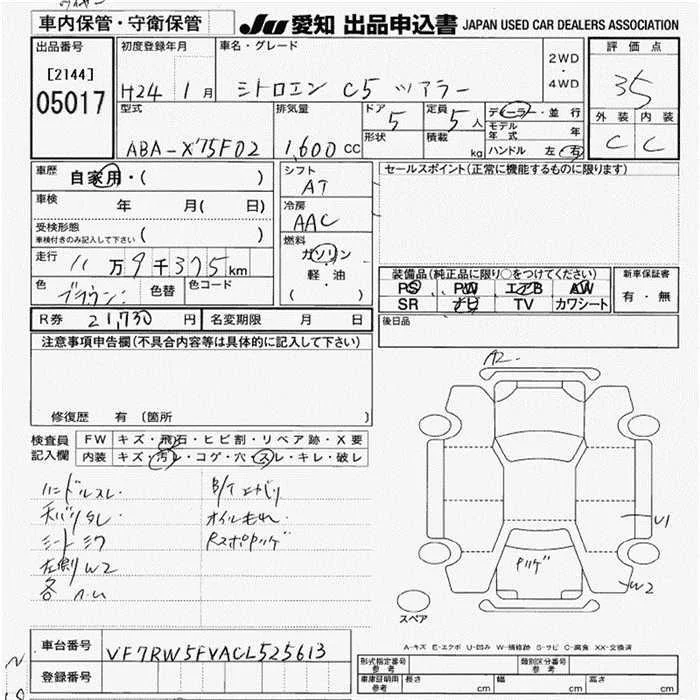 車内保管・守衛保管
JU 愛知 出品申込書 JAPAN USED CAR DEALERS ASSOCIATION
出品番号
[2144]
05017
初度登録年月
H24 1月
車名・グレード
シトロエン C5 ツアラー
2WD
・
4WD
評価点
35
外装 内装
C C
型式
ABA-X75F02
排気量
1,600 cc
ドア 5
形状
定員 5人
積載 kg
ディーラー・並行
モデル年式 年
ハンドル 左 右
車歴
自家用・( )
車検
年 月( 日)
受検形態
車検付きのみ記入して下さい ( )
走行
11万9千375km
色
ブラウン
色替
色コード
シフト
AT
冷房
AAC
燃料
ガソリン
軽・油
( )
セールスポイント(正常に機能するものに限ります)
装備品(純正品に限り○をつけてください)
PS PW エアB AW
SR ナビ TV カワシート
新車保証書
有・無
後日品
R券 21,730 円
名変期限 月 日
注意事項申告欄(不具合内容等は具体的に記入して下さい)
修復歴 有 〔箇所
検査員
記入欄
FW キズ・飛石・ヒビ割・リペア跡・X要
内装 キズ・汚レ・コゲ・穴・スレ・キレ・破レ
ハンドルスレ
天バリタレ
シートシワ
左側W2
各
オイルもれ
A2
U1
W2
スペア
A-キズ E-エクボ U-凹み W-補修跡 S-サビ C-腐食 XX-交換済
車台番号
VF7RW5FVACL525613
登録番号
形式指定番号
参考
類別区分番号
参考
車庫証明用
参考
長さ cm
幅 cm
高さ cm